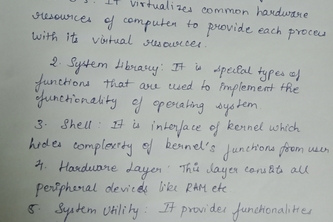 It virtualizes common hardware
resources of computer to provide each process
with its virtual resources.
2. System Library: It is special types of
functions that are used to implement the
functionality of operating system
3. Shell: It is interface of kernel which
hides complexity of kernel's functions from user
4. Hardware Layer: This layer consists all
peripheral devices like RAM etc
5. System Utility: It provides functionalities